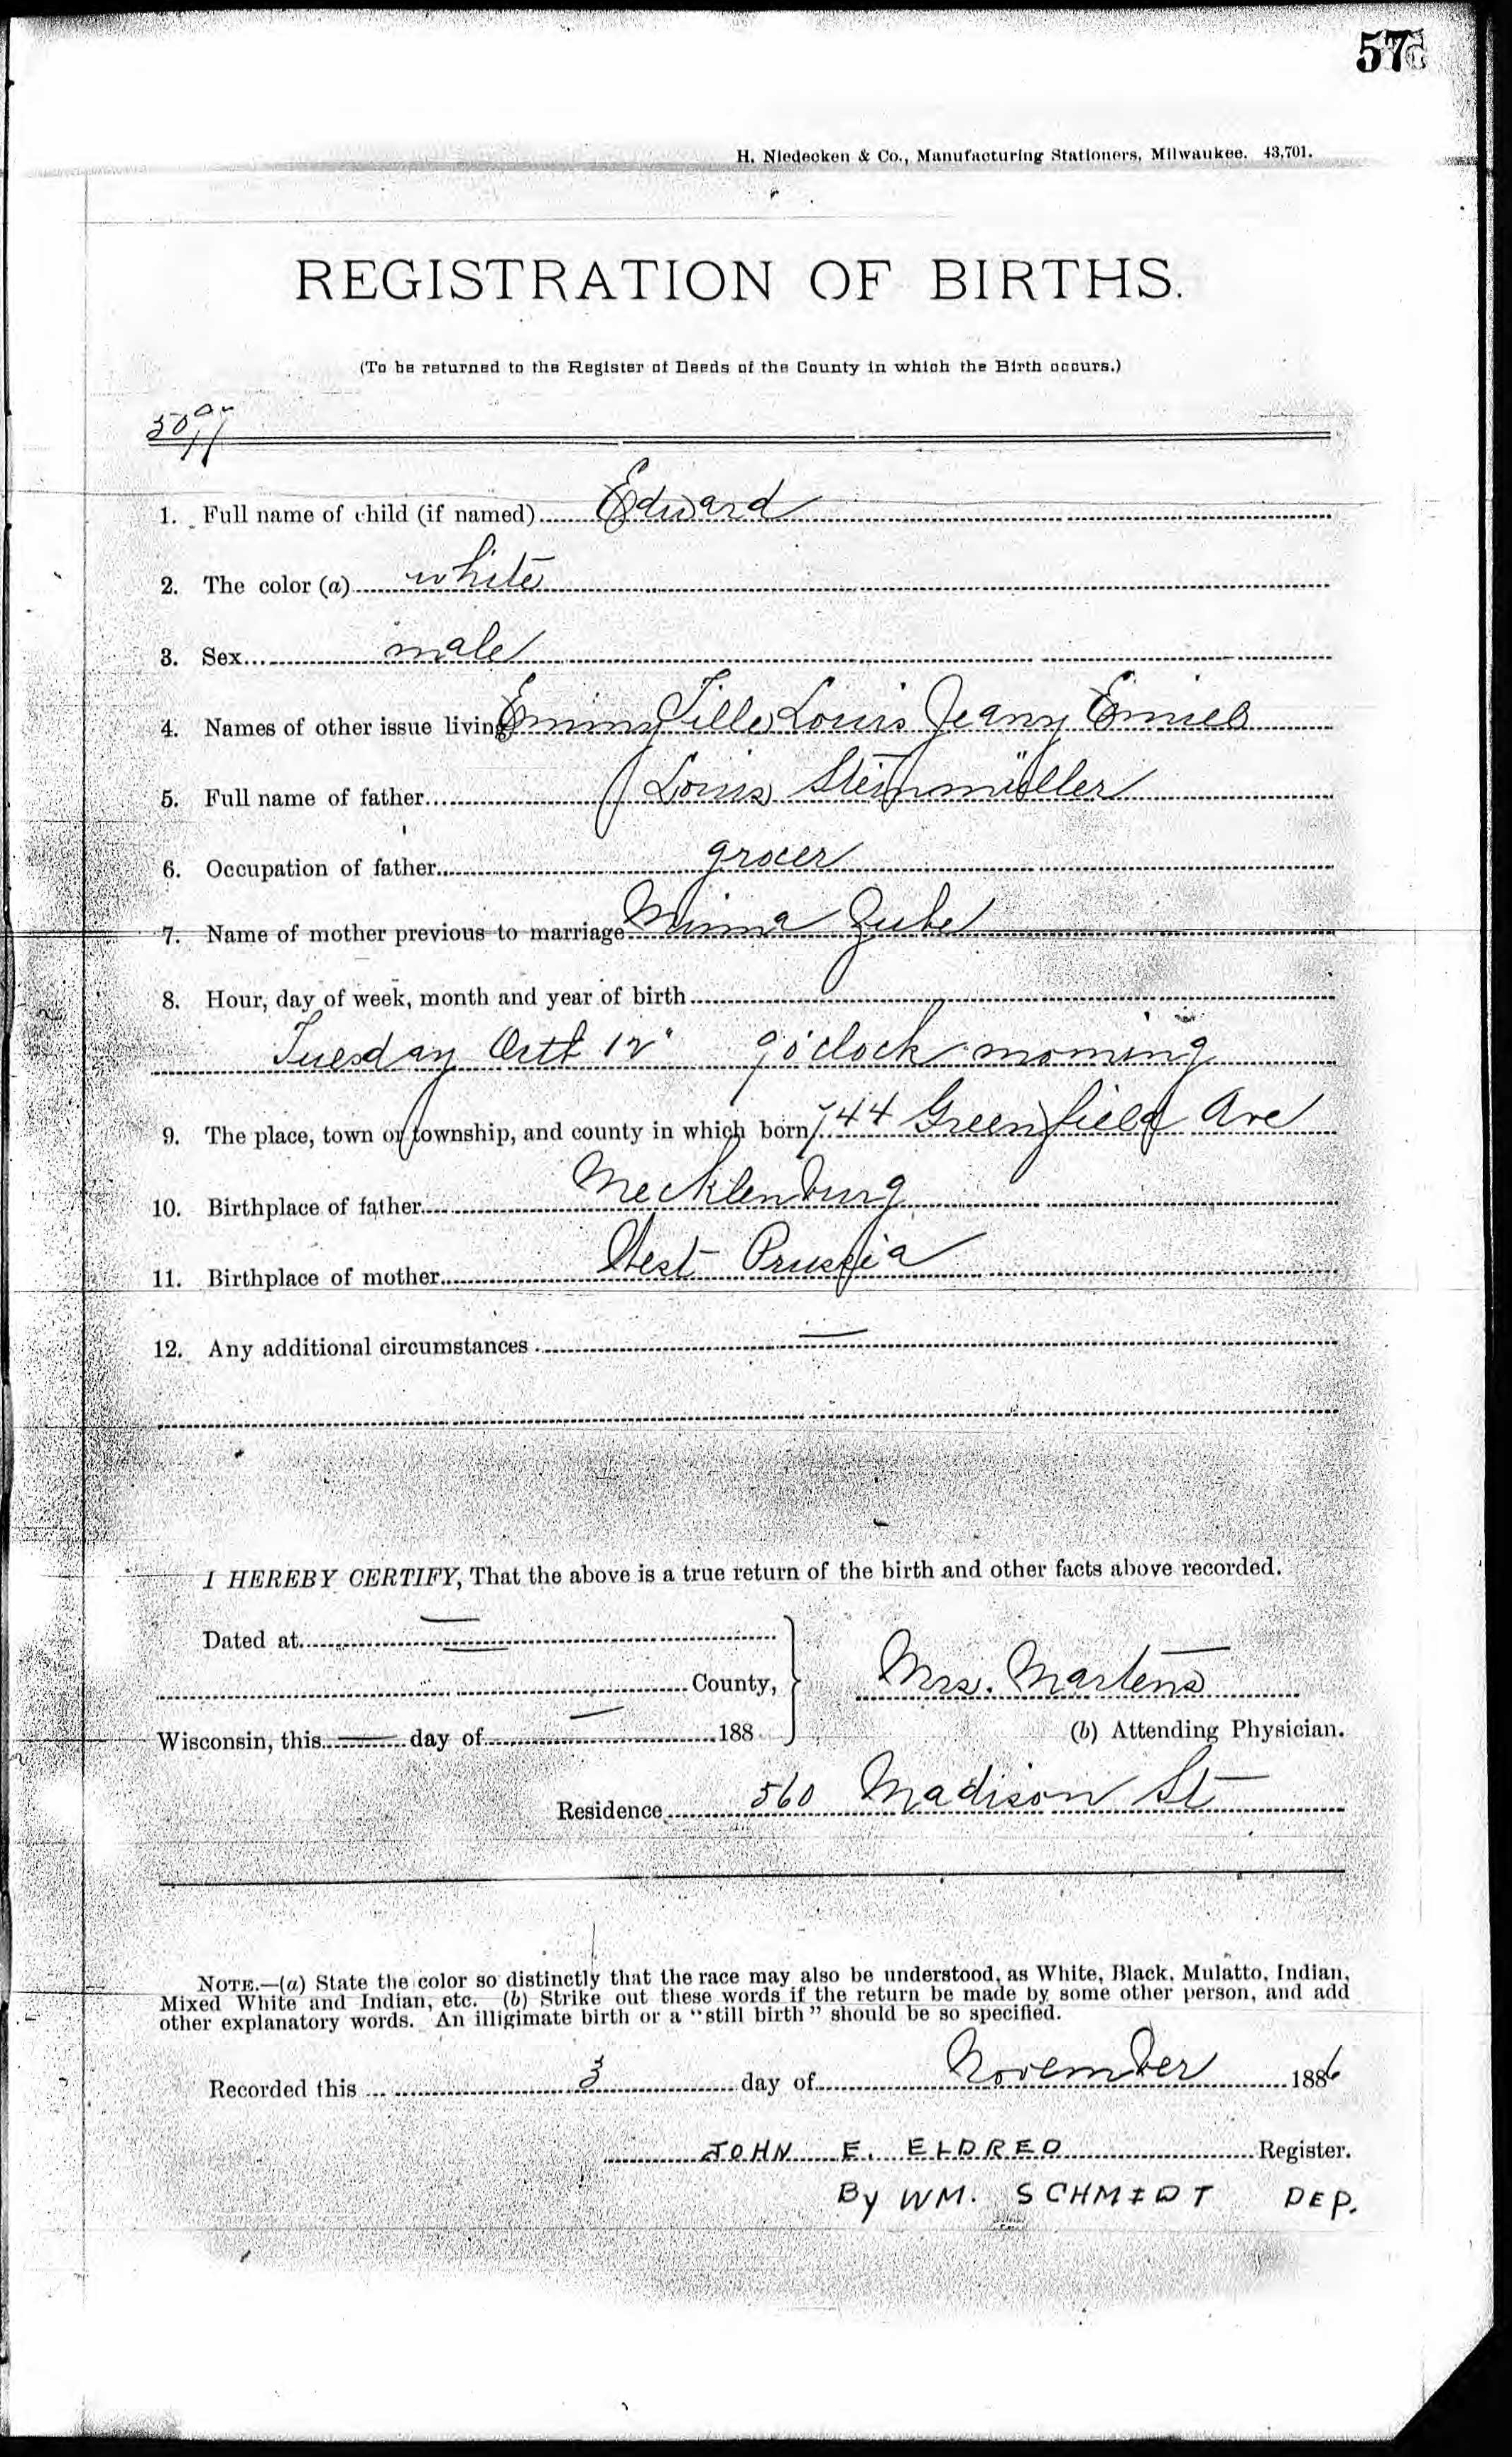 57
H. Niedecken & Co., Manufacturing Stationers, Milwaukee. 43,701.
REGISTRATION OF BIRTHS.
(To be returned to the Register of Deeds of the County in which the Birth occurs.)
1. Full name of child (if named) Edward
2. The color (a) white
3. Sex male
4. Names of other issue living Emmy Louis Jeany
5. Full name of father Louis Steinmüller
6. Occupation of father grocer
7. Name of mother previous to marriage Minna Zube
8. Hour, day of week, month and year of birth
Tuesday Octt 12" 9 o'clock morning
9. The place, town or township, and county in which born 744 Greenfield Ave
10. Birthplace of father Mecklenburg
11. Birthplace of mother West Prussia
12. Any additional circumstances —
I HEREBY CERTIFY, That the above is a true return of the birth and other facts above recorded.
Dated at
County,
Mrs. Martens
Wisconsin, this — day of — 188
(b) Attending Physician.
Residence 560 Madison St
NOTE.—(a) State the color so distinctly that the race may also be understood, as White, Black, Mulatto, Indian,
Mixed White and Indian, etc. (b) Strike out these words if the return be made by some other person, and add
other explanatory words. An illigimate birth or a "still birth" should be so specified.
Recorded this 3 day of November 1886
JOHN E. ELDRED Register.
By WM. SCHMIDT DEP.